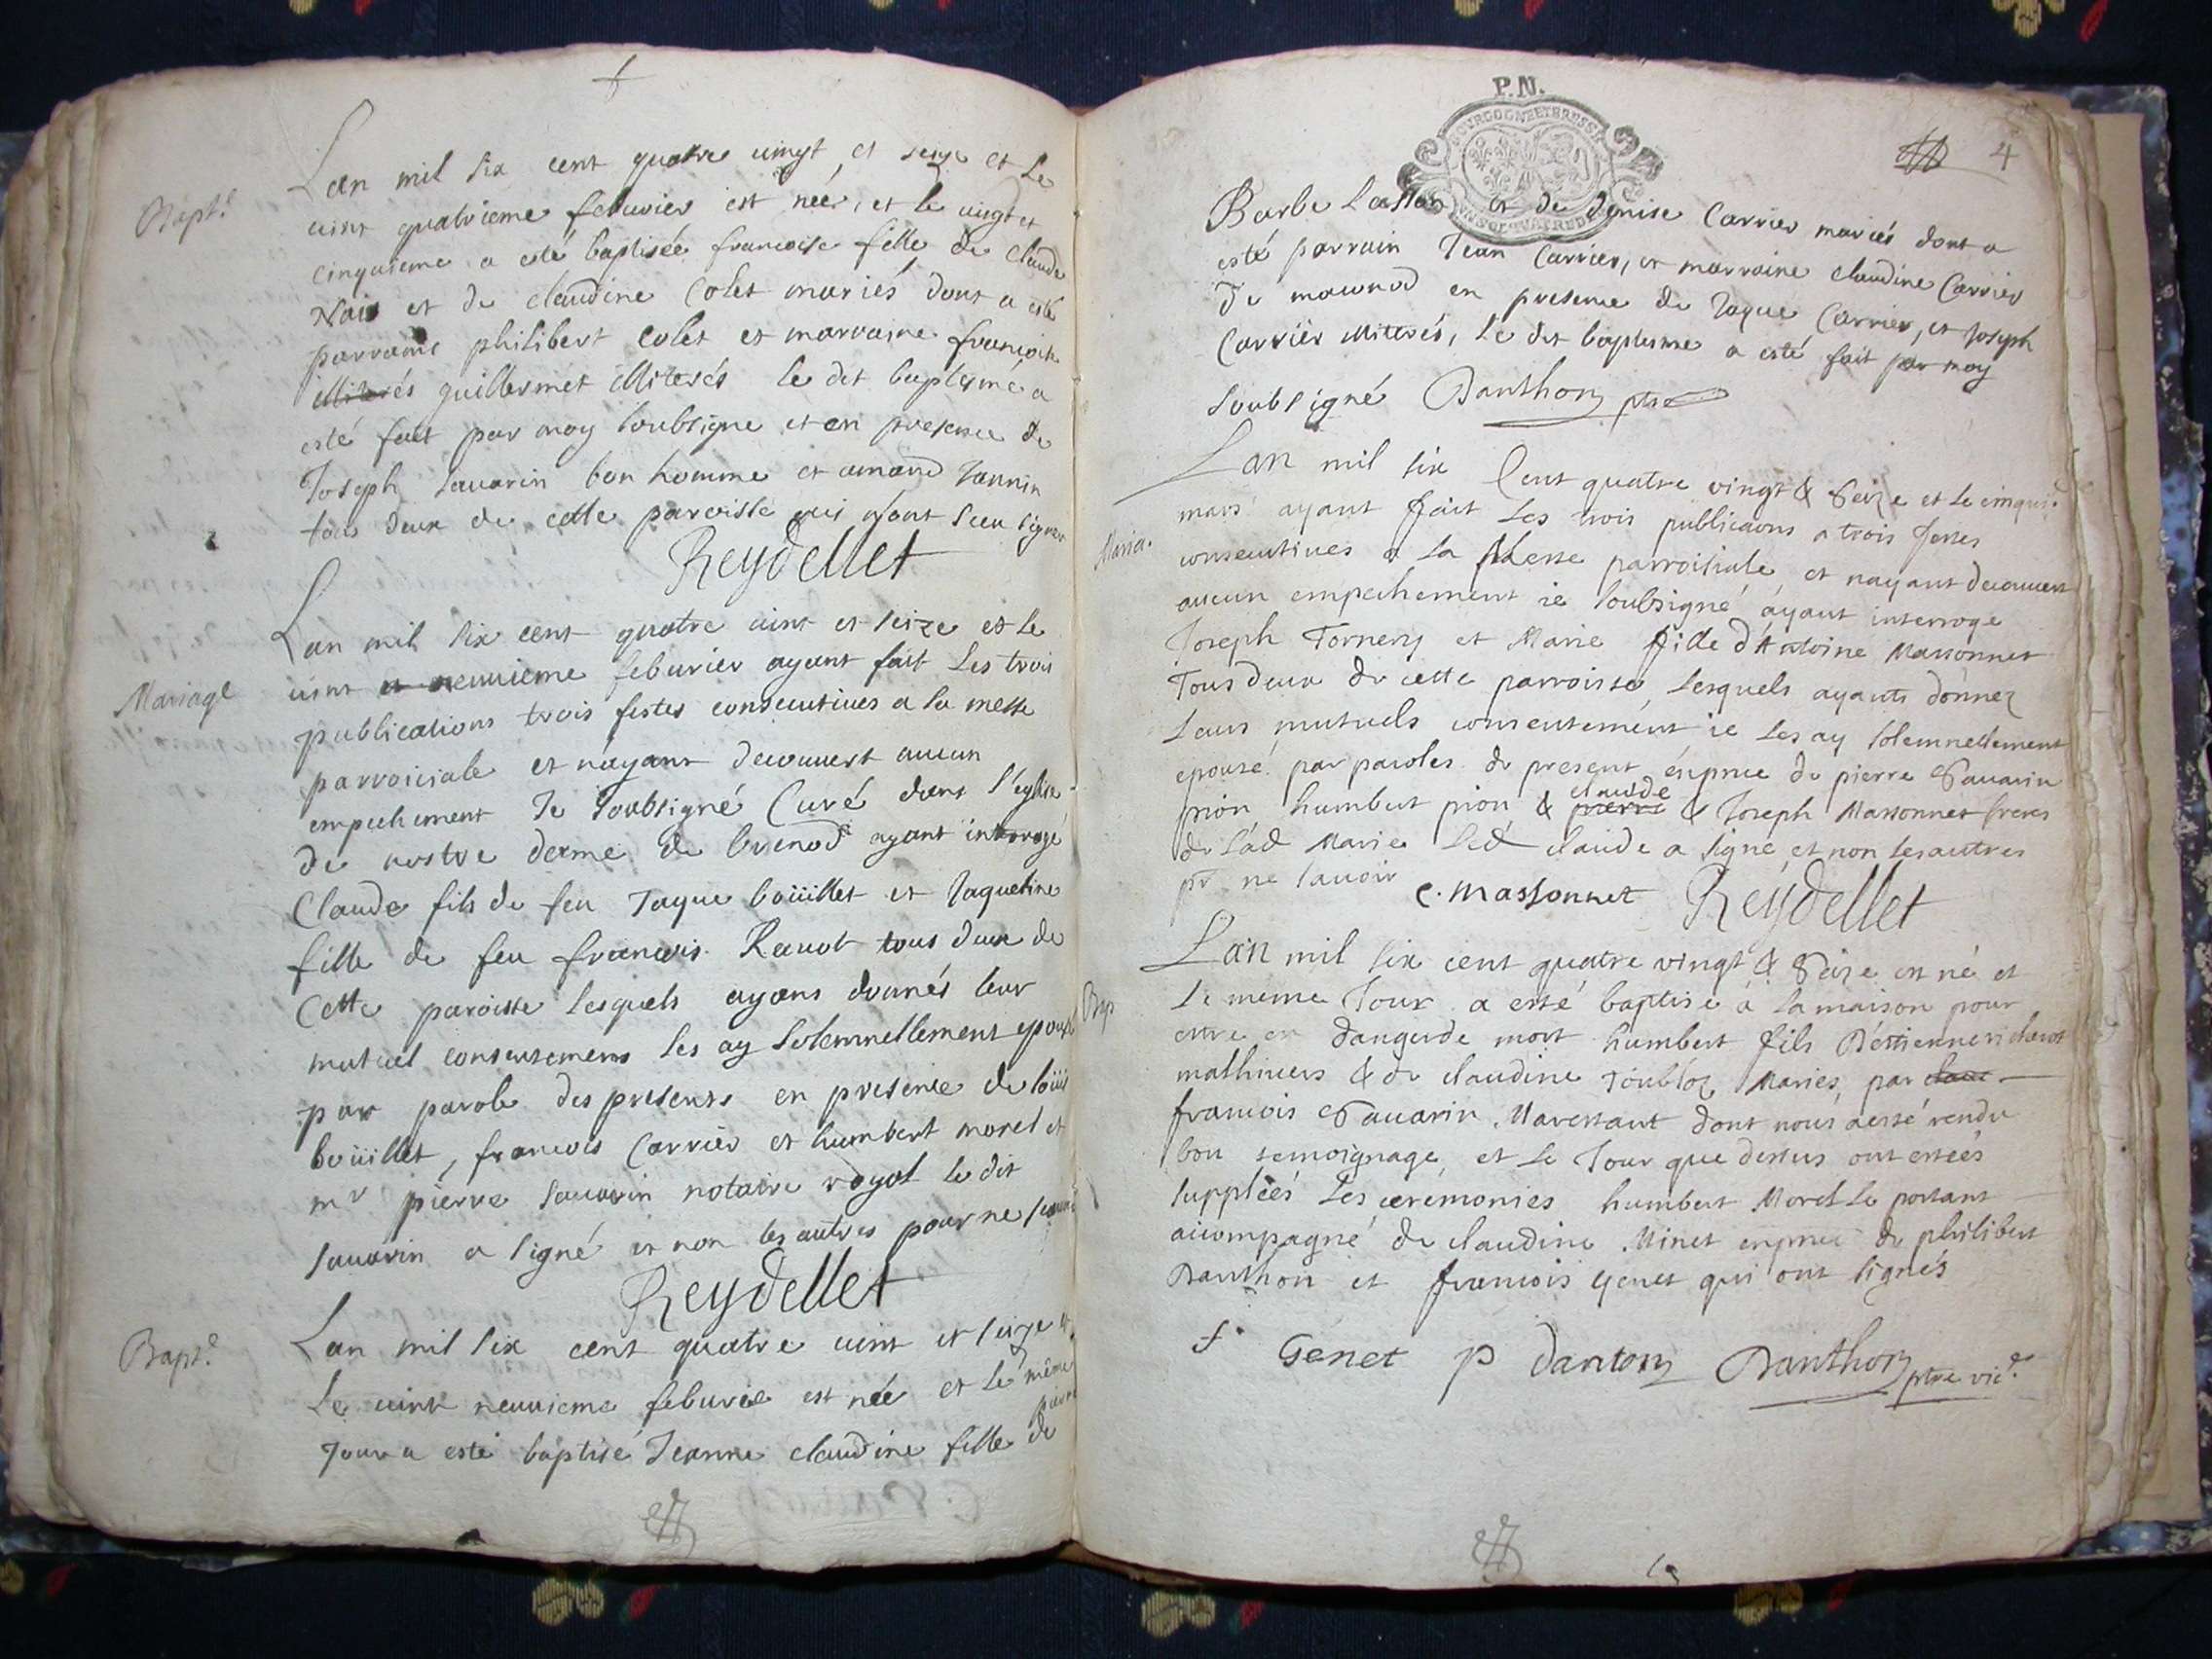 Bapt.
Lan mil six cent quatre vingt et seize et le
vint quatrieme febvrier est née, et le vingt et
cinquieme a esté baptisée francoise fille de claude
Nais et de claudine Colet mariés dont a esté
parraine philibert Colet et marraine francoise
illiterés guillermet illiterés le dit baptesme a
esté fait par moy soubsigne et en presence de
Joseph sauarin bon homme et amand Jannin
tous deux de cette paroisse qui n'ont sceu signer
Reydellet
Mariage
Lan mil six cent quatre vint et seize et le
vint et neuuieme feburier ayant fait les trois
publications trois festes consecutiues a la messe
parroiciale et n'ayant decouuert aucun
empechement Je soubsigné Curé dans l'eglise
de nostre dame de brenod ayant interrogé
Claude fils de feu Jaque boüillet et Jaqueline
fille de feu francois Rauot tous deux de
cette paroisse lesquels ayans donnés leur
mutuel consentemens les ay solemnellement epousé
par parole des presents en presence de loüis
boüillet, francois Carrier et humbert morel et
mr pierre sauarin notaire royal le dit
sauarin a signé et non les autres pour ne scauoir
Reydellet
Bapt.
Lan mil six cent quatre vint et seize et
Le vint neuuieme feburie est née et le même
Jour a esté baptisé Jeanne claudine fille de
pierre
P.N.
BOURGOGNE ET BRESSE
4
Barbe et de denise Carrier mariés dont a
esté parrain Jean Carrier, et marraine claudine Carrier
de macunod en presence de Jaque Carrier, et Joseph
Carrier illiterés, le dit baptesme a esté fait par moy
soubsigné Danthon ptre
Maria.
Lan mil six Cent quatre vingt & Seize et le cinqui.
mars ayant fait les trois publicaons a trois festes
consecutiues a la Messe parroissiale, et nayant decouuert
aucun empechement ie soubsigné ayant interroge
Joseph Tornery et Marie fille d'Antoine Massonnet
Tous deux de cette parroisse, Lesquels ayants donnez
Leurs mutuels consentement ie Les ay solemnellement
epousé par paroles de present, enpnce de pierre Sauarin
pion humbert pion, & pierre claude & Joseph Massonnet freres
de Lad Marie Led claude a signé, et non les autres
pr ne sauoir
C. Massonnet Reydellet
Bap
Lan mil six cent quatre vingt & Seize est né et
le meme Jour a esté baptisé à la maison pour
estre en danger de mort humbert fils D'éstienne
mathieu & de claudine Mariés, par claude
francois Sauarin Marestant dont nous aesté rendu
bon temoignage, et le Jour que dessus ont estéés
suppléés Les ceremonies humbert Morel Le portant
accompagné de claudine Minet enpnce de philibert
Danthon et francois genet qui ont signés
f. Genet p danton Danthon ptre vic.